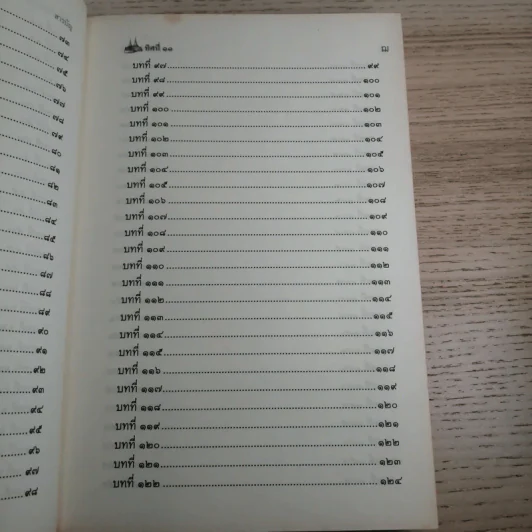 สารบัญ
๗๓
๗๔
๗๕
๗๖
๗๗
๗๘
๗๙
๘๐
๘๑
๘๒
๘๓
๘๔
๘๕
๘๖
๘๗
๘๘
๘๙
๙๐
๙๑
๙๒
๙๓
๙๔
๙๕
๙๖
๙๗
๙๘
ทิศที่ ๑๑
บทที่ ๙๗ ๙๙
บทที่ ๙๘ ๑๐๐
บทที่ ๙๙ ๑๐๑
บทที่ ๑๐๐ ๑๐๒
บทที่ ๑๐๑ ๑๐๓
บทที่ ๑๐๒ ๑๐๔
บทที่ ๑๐๓ ๑๐๕
บทที่ ๑๐๔ ๑๐๖
บทที่ ๑๐๕ ๑๐๗
บทที่ ๑๐๖ ๑๐๘
บทที่ ๑๐๗ ๑๐๙
บทที่ ๑๐๘ ๑๑๐
บทที่ ๑๐๙ ๑๑๑
บทที่ ๑๑๐ ๑๑๒
บทที่ ๑๑๑ ๑๑๓
บทที่ ๑๑๒ ๑๑๔
บทที่ ๑๑๓ ๑๑๕
บทที่ ๑๑๔ ๑๑๖
บทที่ ๑๑๕ ๑๑๗
บทที่ ๑๑๖ ๑๑๘
บทที่ ๑๑๗ ๑๑๙
บทที่ ๑๑๘ ๑๒๐
บทที่ ๑๑๙ ๑๒๑
บทที่ ๑๒๐ ๑๒๒
บทที่ ๑๒๑ ๑๒๓
บทที่ ๑๒๒ ๑๒๔